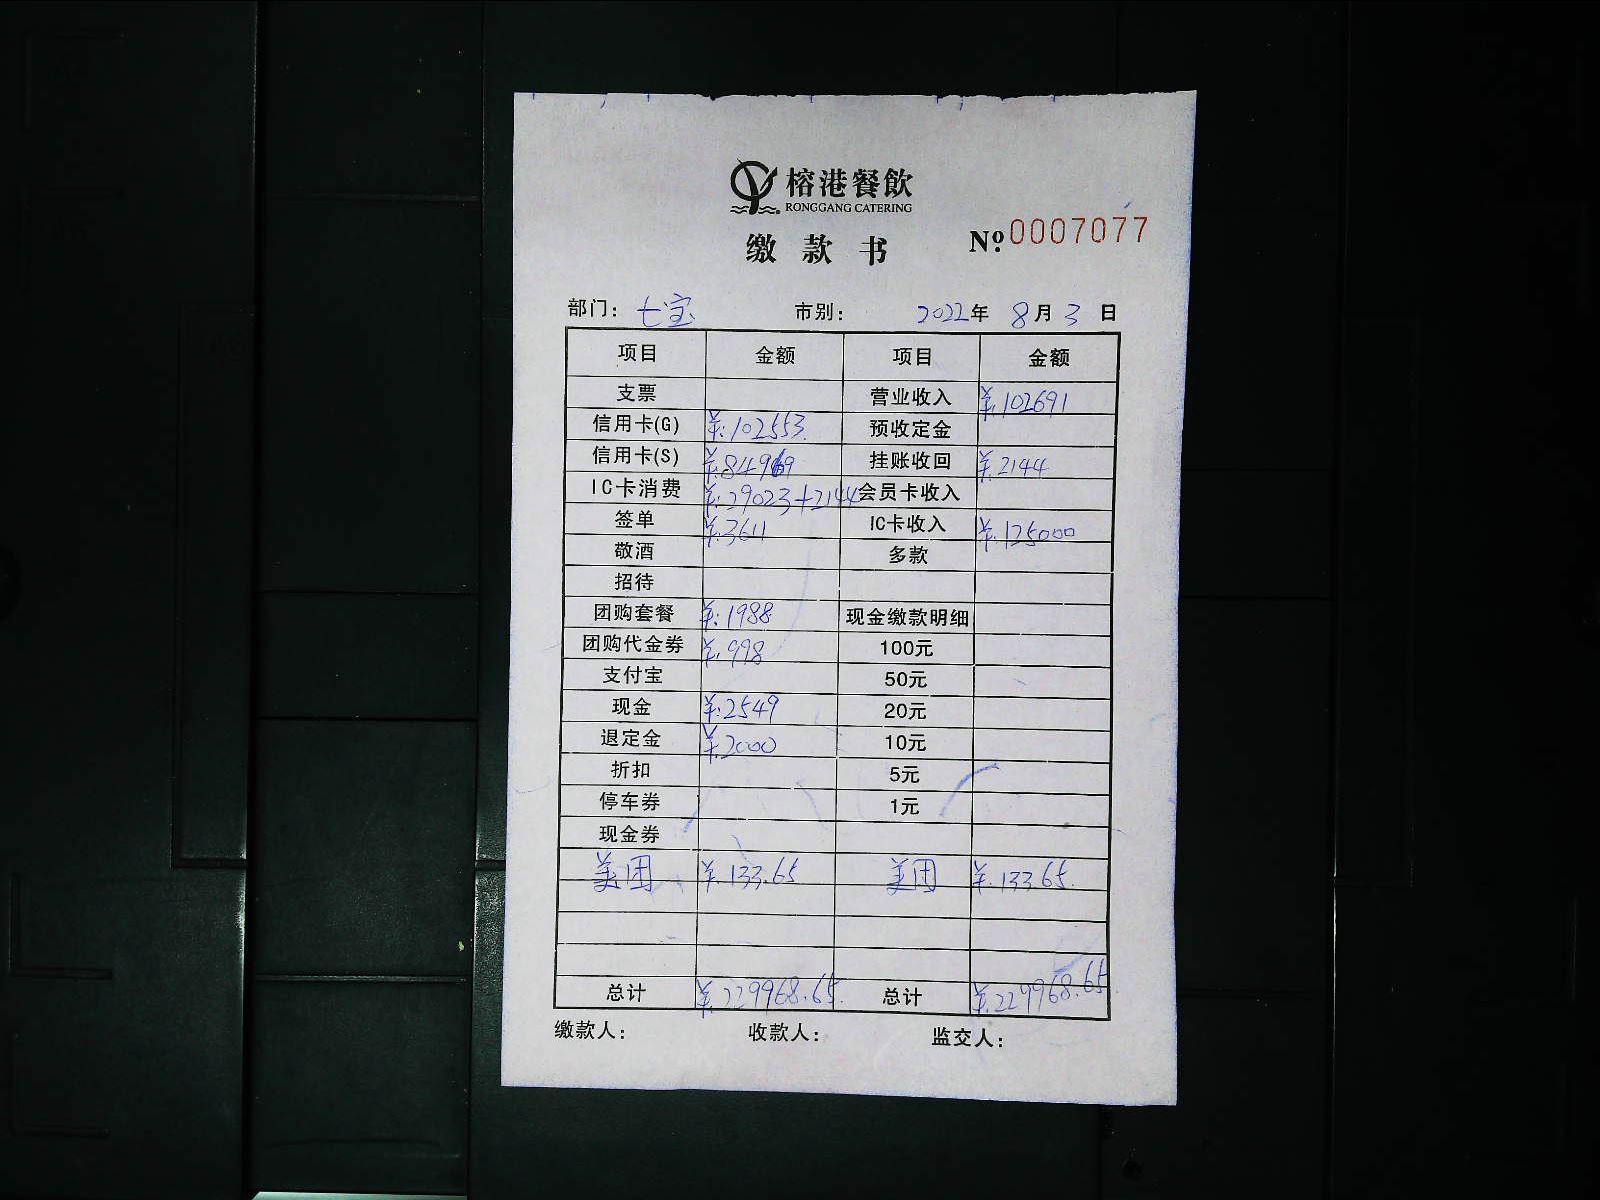 榕港餐飲
RONGGANG CATERING
缴款书 Nº:0007077
部门: 七宝 市别: 2022年 8月 3日
项目 金额 项目 金额
支票 营业收入 ¥:102691
信用卡(G) ¥:102553 预收定金
信用卡(S) ¥:84969 挂账收回 ¥:2144
IC卡消费 ¥:29023+2144 会员卡收入
签单 ¥:3611 IC卡收入 ¥:125000
敬酒 多款
招待
团购套餐 ¥:1988 现金缴款明细
团购代金券 ¥:998 100元
支付宝 50元
现金 ¥:2549 20元
退定金 ¥:2000 10元
折扣 5元
停车券 1元
现金券
美团 ¥:133.65 美团 ¥:133.65.
总计 ¥:229968.65. 总计 ¥:229968.65
缴款人: 收款人: 监交人: